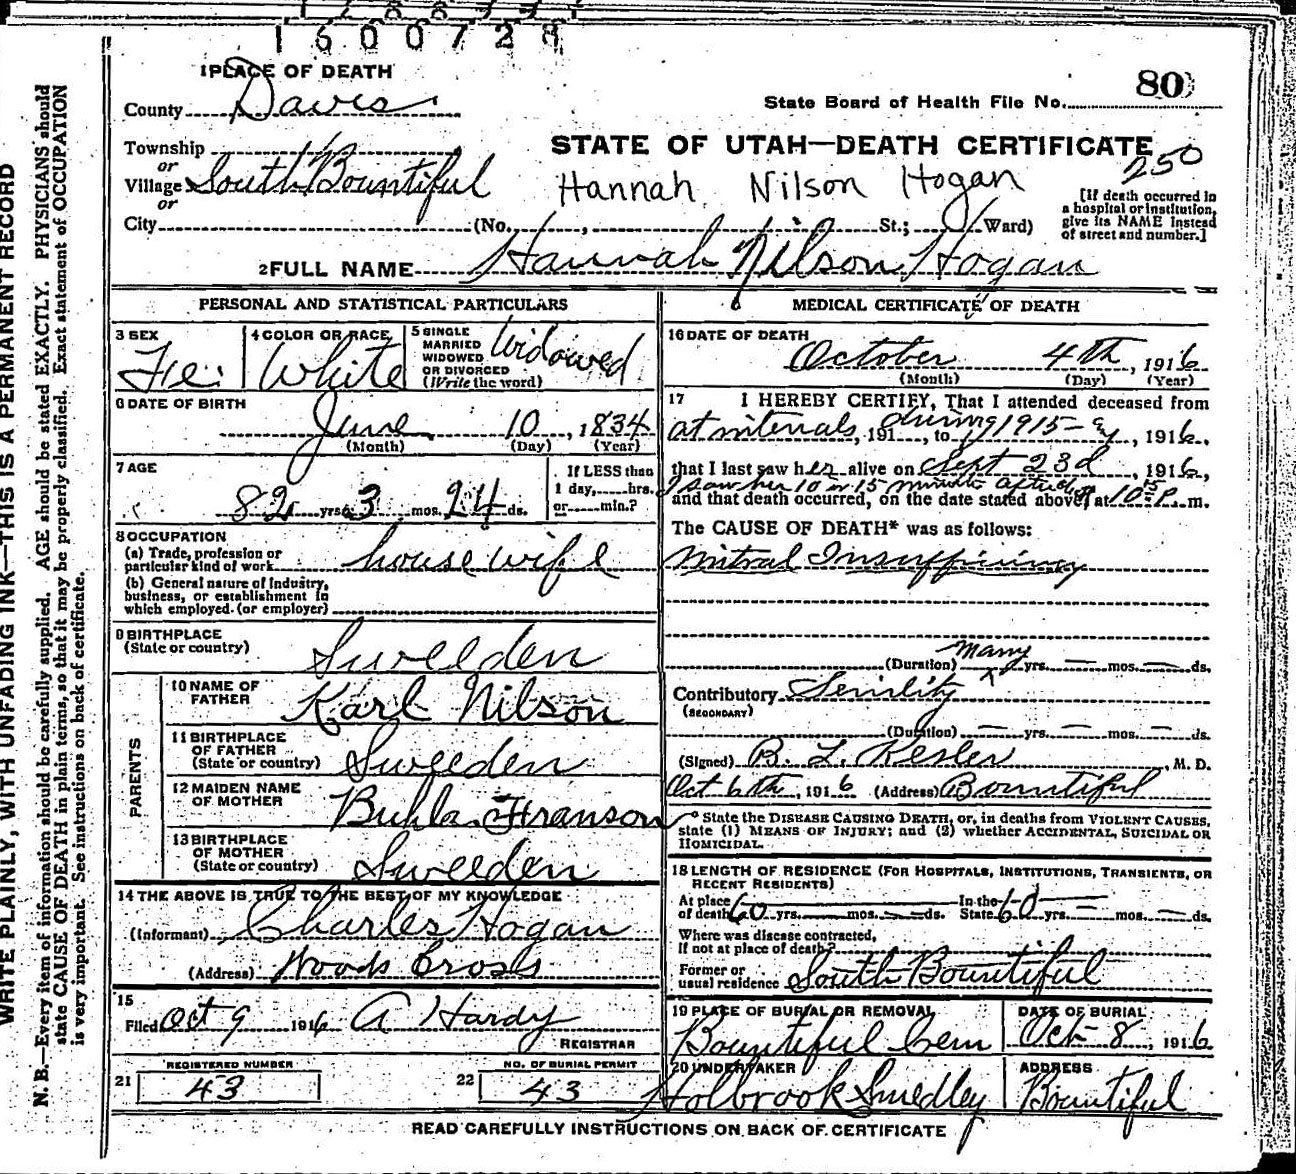 1600728
1 PLACE OF DEATH
80
County Davis
State Board of Health File No.
Township
STATE OF UTAH—DEATH CERTIFICATE
250
or
Village South Bountiful
Hannah Nilson Hogan
or
City (No. , St.; Ward)
[If death occurred in
a hospital or institution,
give its NAME instead
of street and number.]
2 FULL NAME Hannah Nilson Hogan
PERSONAL AND STATISTICAL PARTICULARS
3 SEX Fe.
4 COLOR OR RACE White
5 SINGLE
MARRIED
WIDOWED
OR DIVORCED
(Write the word) Widowed
6 DATE OF BIRTH
June 10, 1834
(Month) (Day) (Year)
7 AGE
82 yrs. 3 mos. 24 ds.
If LESS than
1 day, hrs.
or min.?
8 OCCUPATION
(a) Trade, profession or
particular kind of work housewife
(b) General nature of Industry,
business, or establishment in
which employed (or employer)
9 BIRTHPLACE
(State or country) Sweeden
PARENTS
10 NAME OF
FATHER Karl Nilson
11 BIRTHPLACE
OF FATHER
(State or country) Sweeden
12 MAIDEN NAME
OF MOTHER Buhla Franson
13 BIRTHPLACE
OF MOTHER
(State or country) Sweeden
14 THE ABOVE IS TRUE TO THE BEST OF MY KNOWLEDGE
(Informant) Charles Hogan
(Address) Woods Cross
15
Filed Oct 9 1916 A Hardy
REGISTRAR
REGISTERED NUMBER
21 43
NO. OF BURIAL PERMIT
22 43
MEDICAL CERTIFICATE OF DEATH
16 DATE OF DEATH
October 4th, 1916
(Month) (Day) (Year)
17 I HEREBY CERTIFY, That I attended deceased from
at intervals, 191 , to during 1915- , 1916,
that I last saw her alive on Sept 23d, 1916,
I saw her 10 or 15 minutes after
and that death occurred, on the date stated above, at 10 15 P. m.
The CAUSE OF DEATH* was as follows:
Mitral Insufficiency
(Duration) many yrs. — mos. — ds.
Contributory Senility
(SECONDARY)
(Duration) — yrs. — mos. — ds.
(Signed) B. L. Kesler, M. D.
Oct 6th, 1916 (Address) Bountiful
* State the DISEASE CAUSING DEATH, or, in deaths from VIOLENT CAUSES,
state (1) MEANS OF INJURY; and (2) whether ACCIDENTAL, SUICIDAL OR
HOMICIDAL.
18 LENGTH OF RESIDENCE (FOR HOSPITALS, INSTITUTIONS, TRANSIENTS, OR
RECENT RESIDENTS)
At place
of death 60 yrs. — mos. — ds. In the
State 60 yrs. — mos. — ds.
Where was disease contracted,
If not at place of death?
Former or
usual residence South Bountiful
19 PLACE OF BURIAL OR REMOVAL
Bountiful Cem
DATE OF BURIAL
Oct- 8, 1916
20 UNDERTAKER
Holbrook Smedley
ADDRESS
Bountiful
READ CAREFULLY INSTRUCTIONS ON BACK OF CERTIFICATE
WRITE PLAINLY, WITH UNFADING INK—THIS IS A PERMANENT RECORD
N. B.—Every item of information should be carefully supplied. AGE should be stated EXACTLY. PHYSICIANS should
state CAUSE OF DEATH in plain terms, so that it may be properly classified. Exact statement of OCCUPATION
is very important. See instructions on back of certificate.